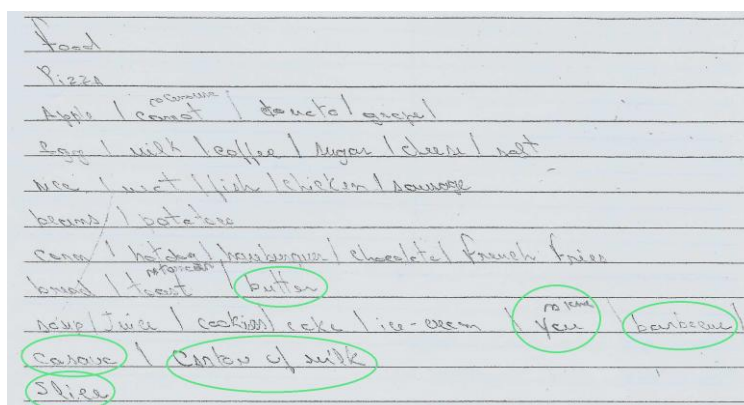 food
Pizza
Apple | carrot | tomato | grape |
Egg | milk | coffee | sugar | cheese | salt
rice | meat | fish | chicken | sausage
beans | potatoes
corn | hotdog | hamburguer | chocolate | french fries
bread | toast | butter
soup | juice | cookies | cake | ice-cream | | barbecue |
casove | Carton of milk
Slice